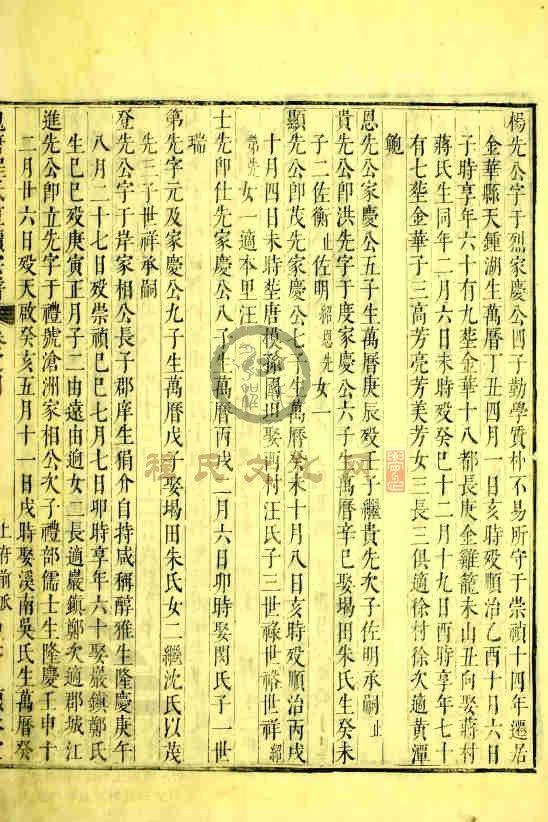 楊先公字于烈家慶公四子勤學質朴不易所守于崇禎十四年遷居
金華縣天鍾湖生萬曆丁丑四月一日亥時殁順治乙酉十月六日
子時享年六十有九塟金華十八都長庚金雞籠未山丑向娶蔣村
蔣氏生同年二月六日未時殁癸巳十二月十九日酉時享年七十
有七塟金華子三高芳亮芳美芳女三長三俱適徐村徐次適黄潭
鮑
恩先公家慶公五子生萬曆庚辰殁壬子繼貴先次子佐明承嗣止
貴先公卽洪先字于度家慶公六子生萬曆辛巳娶塲田朱氏生癸未
子二佐衡止佐明紹恩先女一
顯先公卽茂先家慶公七子生萬曆癸未十月八日亥時殁順治丙戌
十月四日未時塟唐模孫園田娶西村汪氏子三世祿世裕世祥紹
第先女一適本里汪
士先卽仕先家慶公八子生萬曆丙戌二月六日卯時娶閔氏子一世
瑞
第先字元及家慶公九子生萬曆戊子娶塲田朱氏女二繼沈氏以茂
先三子世祥承嗣
登先公字于岸家相公長子郡庠生狷介自持咸稱醇雅生隆慶庚午
八月二十七日殁崇禎己巳七月七日卯時享年六十娶巖鎮鄭氏
生己巳殁庚寅正月子二由遠由適女二長適巖鎮鄭次適郡城江
進先公卽立先字于禮號滄洲家相公次子禮部儒士生隆慶壬申十
二月廿六日殁天啟癸亥五月十一日戌時娶溪南吳氏生萬曆癸
程氏文化网